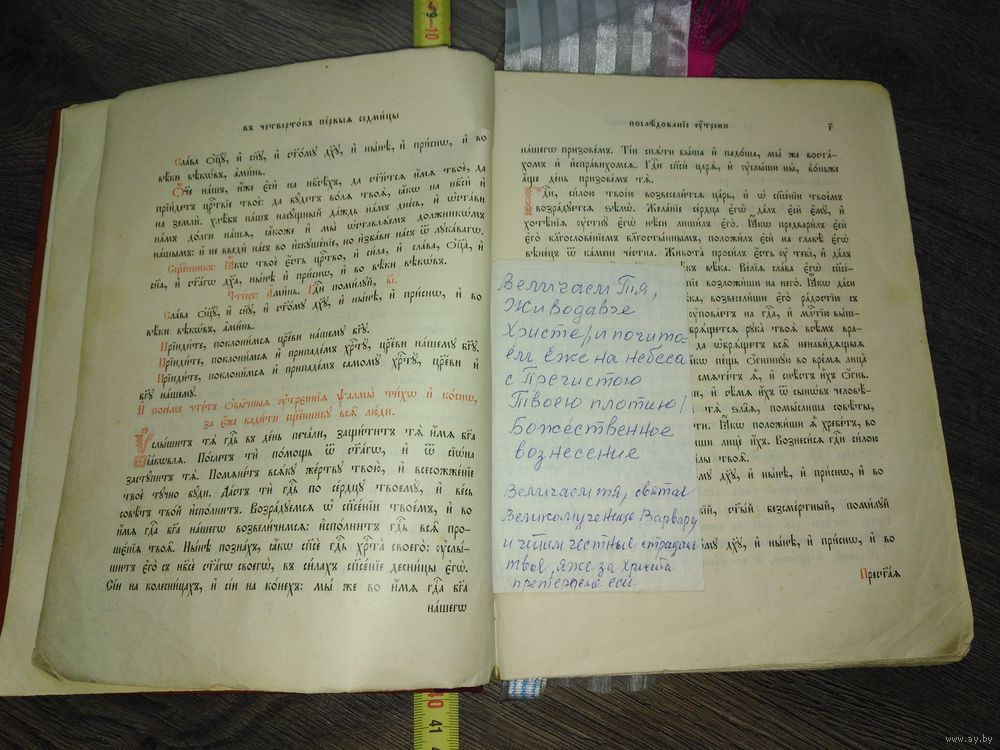 въ четверто́къ пе́рвыѧ седми́цы
Сла́ва ѻ҆ц҃ꙋ̀, и҆ сн҃ꙋ, и҆ ст҃о́мꙋ дх҃ꙋ, и҆ ны́нѣ, и҆ при́снѡ, и҆ во
вѣ́ки вѣкѡ́въ, а҆ми́нь.
Ѻ҆́ч҃е на́шъ, и҆́же є҆сѝ на нб҃сѣ́хъ, да ст҃и́тсѧ и҆́мѧ твоѐ, да
прїи́детъ црⷭ҇твїе твоѐ: да бꙋ́детъ во́лѧ твоѧ̀, ꙗ҆́кѡ на нб҃сѝ и҆
на землѝ. хлѣ́бъ на́шъ насꙋ́щный да́ждь на́мъ дне́сь, и҆ ѡ҆ста́ви
на́мъ до́лги на́шѧ, ꙗ҆́коже и҆ мы̀ ѡ҆ставлѧ́емъ должникѡ́мъ
на́шымъ: и҆ не введѝ на́съ во и҆скꙋше́нїе, но и҆зба́ви на́съ ѿ лꙋка́вагѡ.
Сщ҃е́нникъ: Ꙗ҆́кѡ твоѐ є҆́сть црⷭ҇тво, и҆ си́ла, и҆ сла́ва, ѻ҆ц҃а̀, и҆
сн҃а, и҆ ст҃а́гѡ дх҃а, ны́нѣ и҆ при́снѡ, и҆ во вѣ́ки вѣкѡ́въ.
Чте́цъ: А҆ми́нь. Гдⷭ҇и поми́лꙋй, в҃і.
Сла́ва ѻ҆ц҃ꙋ̀, и҆ сн҃ꙋ, и҆ ст҃о́мꙋ дх҃ꙋ, и҆ ны́нѣ, и҆ при́снѡ, и҆ во
вѣ́ки вѣкѡ́въ, а҆ми́нь.
Прїиди́те, поклони́мсѧ цр҃е́ви на́шемꙋ бг҃ꙋ.
Прїиди́те, поклони́мсѧ и҆ припаде́мъ хрⷭ҇тꙋ̀, цр҃е́ви на́шемꙋ бг҃ꙋ.
Прїиди́те, поклони́мсѧ и҆ припаде́мъ самомꙋ̀ хрⷭ҇тꙋ̀, цр҃е́ви и҆
бг҃ꙋ на́шемꙋ.
И҆ посе́мъ чте́тъ ѻ҆бы́чныѧ ᲂу҆́трєннїѧ ѱалмы̀ ти́хѡ и҆ ко́снѡ,
за є҆́же кади́ти сщ҃е́нникꙋ всѧ̑ лю́ди.
Оу҆слы́шитъ тѧ̀ гдⷭ҇ь въ де́нь печа́ли, защи́титъ тѧ̀ и҆́мѧ бг҃а
і҆а́кѡвлѧ. По́слетъ тѝ по́мощь ѿ ст҃а́гѡ, и҆ ѿ сїѡ́на
застꙋ́питъ тѧ̀. Помѧне́тъ всѧ́кꙋ же́ртвꙋ твою̀, и҆ всесожже́нїе
твоѐ тꙋ́чно бꙋ́ди. Да́стъ тѝ гдⷭ҇ь по се́рдцꙋ твоемꙋ̀, и҆ ве́сь
совѣ́тъ тво́й и҆спо́лнитъ. Возра́дꙋемсѧ ѡ҆ сп҃се́нїи твое́мъ, и҆ во
и҆́мѧ гдⷭ҇а бг҃а на́шегѡ возвели́чимсѧ: и҆спо́лнитъ гдⷭ҇ь всѧ̑ про-
шє́нїѧ твоѧ̑. Ны́нѣ позна́хъ, ꙗ҆́кѡ сп҃сѐ гдⷭ҇ь хрⷭ҇та̀ своего̀: ᲂу҆слы́-
шитъ є҆го̀ съ нб҃сѐ ст҃а́гѡ своегѡ̀, въ си́лахъ сп҃се́нїе десни́цы є҆гѡ̀.
Сі́и на колесни́цахъ, и҆ сі́и на ко́нехъ: мы́ же во и҆́мѧ гдⷭ҇а бг҃а
на́шегѡ
послѣ́дованїе ᲂу҆́трени
на́шегѡ призове́мъ. Ті́и спѧ́ти бы́ша и҆ падо́ша, мы́ же воста́-
хомъ и҆ и҆спра́вихомсѧ. Гдⷭ҇и сп҃сѝ царѧ̀, и҆ ᲂу҆слы́ши ны̀, во́ньже
а҆́ще де́нь призове́мъ тѧ̀.
Гдⷭ҇и, си́лою твое́ю возвесели́тсѧ ца́рь, и҆ ѡ҆ сп҃се́нїи твое́мъ
возра́дꙋетсѧ ѕѣлѡ̀. Жела́нїе се́рдца є҆гѡ̀ да́лъ є҆сѝ є҆мꙋ̀, и҆
хотѣ́нїѧ ᲂу҆стнꙋ̀ є҆гѡ̀ нѣ́си лиши́лъ є҆го̀. Ꙗ҆́кѡ предвари́лъ є҆сѝ
є҆го̀ блг҃ослове́нїемъ благосты́ннымъ, положи́лъ є҆сѝ на главѣ̀ є҆гѡ̀
вѣне́цъ ѿ ка́мене че́стна. Живота̀ проси́лъ є҆́сть ᲂу҆ тебє̀, и҆ да́лъ
вѣ́ка. Ве́лїѧ сла́ва є҆гѡ̀ сп҃се́-
возложи́ши на него̀. Ꙗ҆́кѡ да́си
ка, возвесели́ши є҆го̀ ра́достїю съ
ᲂу҆пова́етъ на гдⷭ҇а, и҆ млⷭ҇тїю вы́ш-
брѧ́щетсѧ рꙋка̀ твоѧ̀ всѣ̑мъ вра-
да ѡ҆брѧ́щетъ всѧ̑ ненави́дѧщыѧ
ꙗ҆́кѡ пе́щь ѻ҆́гненнꙋю во вре́мѧ лица̀
смѧте́тъ ѧ҆̀, и҆ снѣ́сть и҆̀хъ ѻ҆́гнь.
и҆ сѣ́мѧ и҆́хъ ѿ сынѡ́въ человѣ́-
тѧ̀ ѕла̑ѧ, помы́слиша совѣ́ты,
ти. Ꙗ҆́кѡ положи́ши ѧ҆̀ хребе́тъ, во
виши лицѐ и҆́хъ. Вознеси́сѧ гдⷭ҇и си́лою
лы твоѧ̑.
дх҃ꙋ, и҆ ны́нѣ, и҆ при́снѡ, и҆ во
ст҃ы́й безсме́ртный, поми́лꙋй
мꙋ дх҃ꙋ, и҆ ны́нѣ, и҆ при́снѡ, и҆ во
Прест҃а́ѧ
Величаем Тя,
Живодавче
Христе, и почита-
ем еже на небеса
с Пречистою
Твоею плотию,
Божественное
вознесение
Величаем тя, святая
Великомученице Варвару
и чтим честные страдан
твое, яже за Христа
претерпела еси.
9 10
40 41
www.ay.by